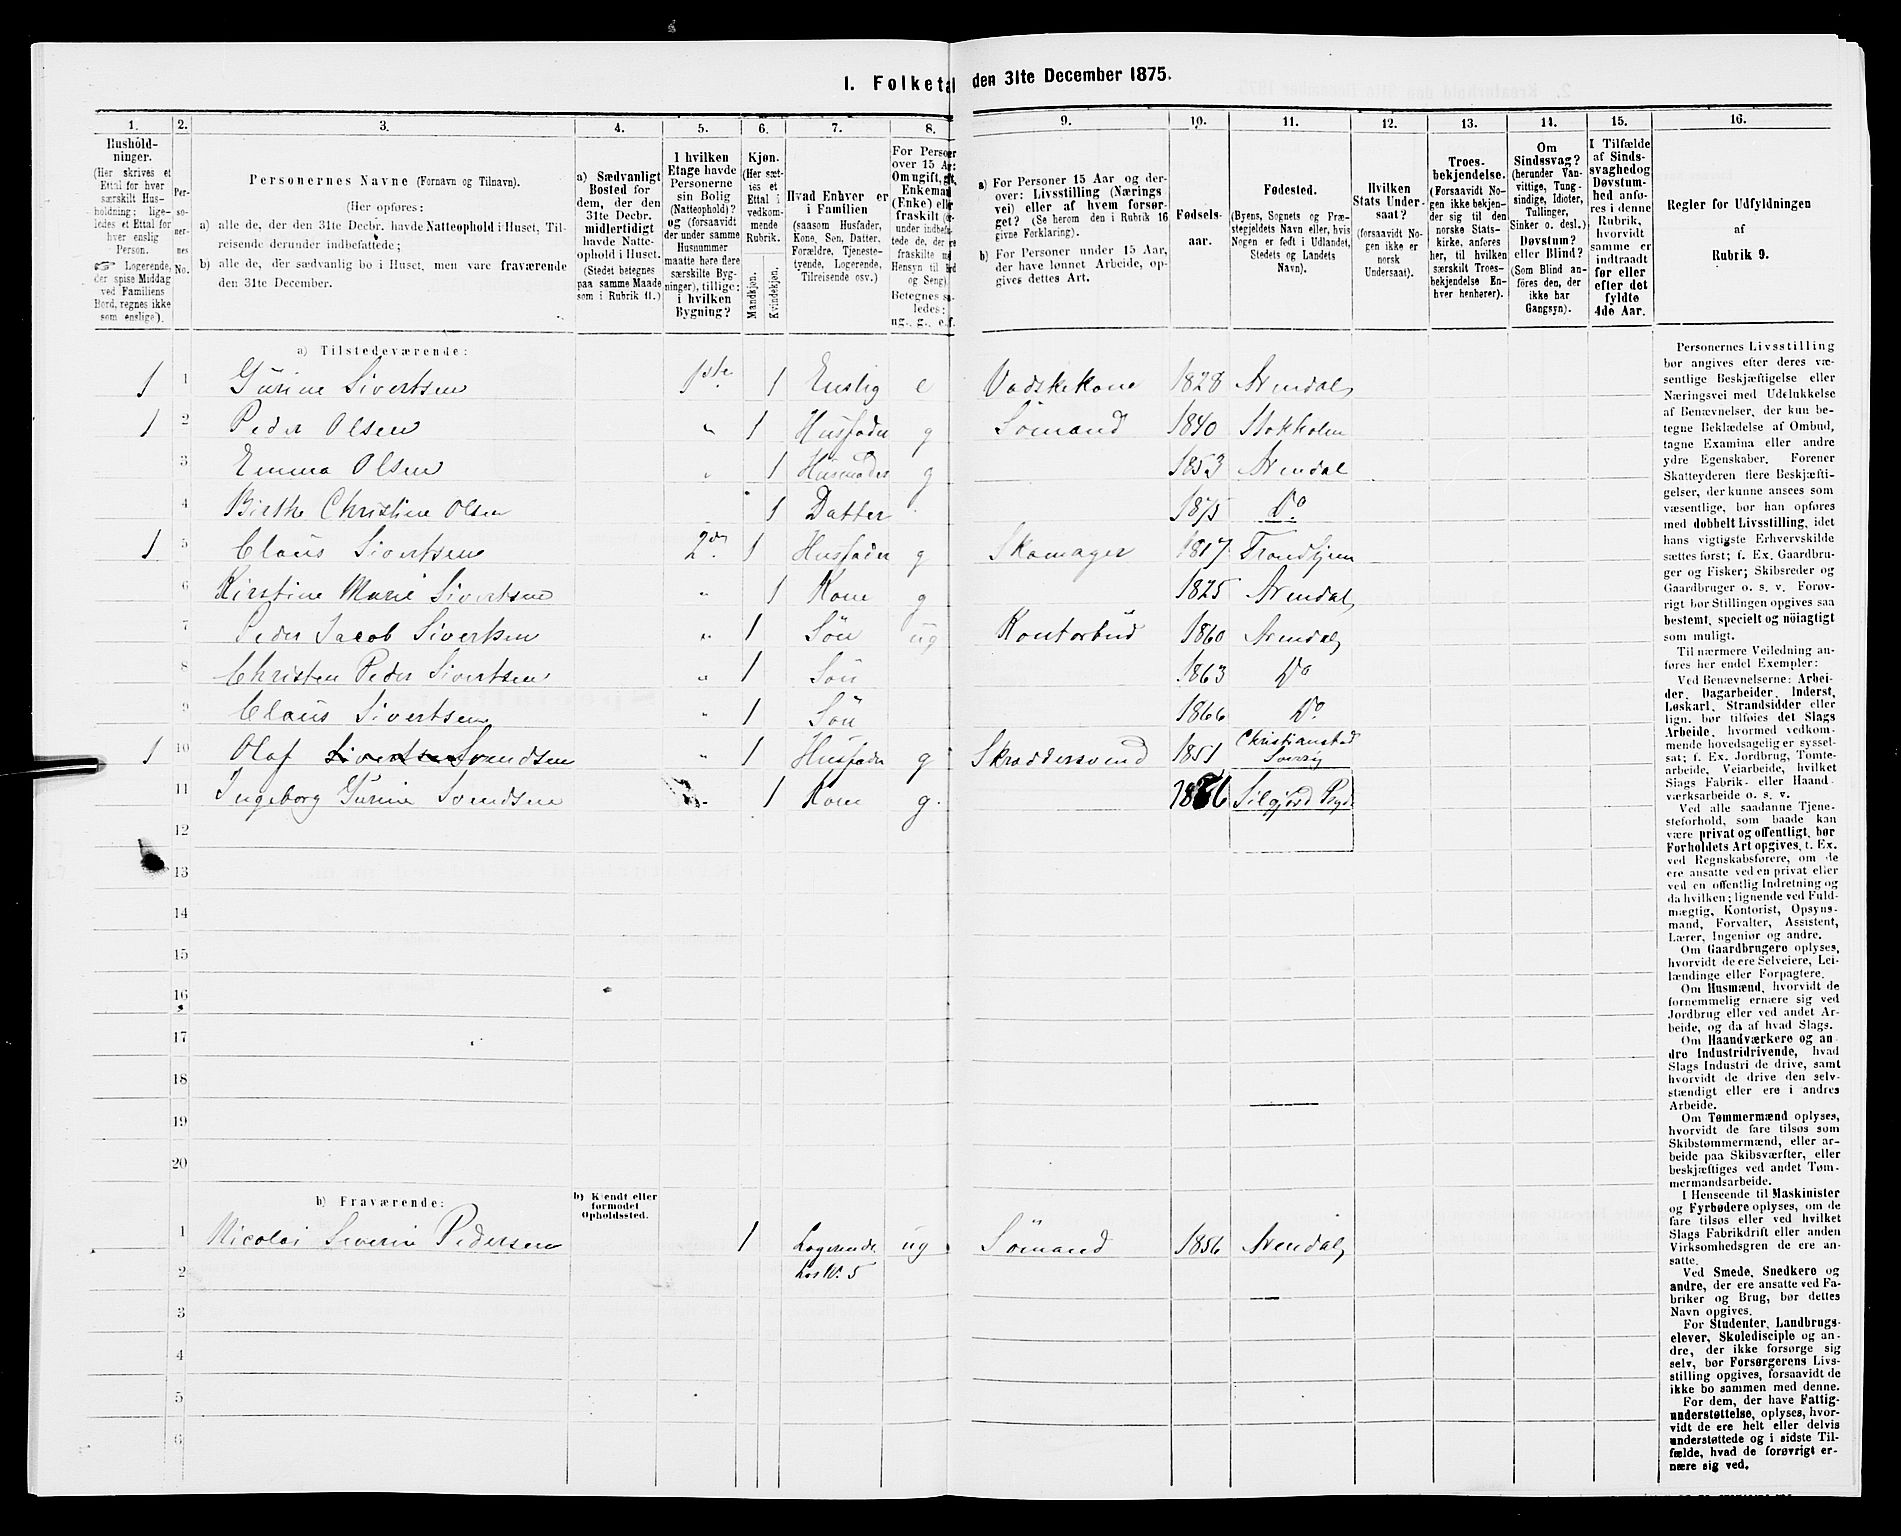 I. Folketal den 31te December 1875.
1. 2. 3. 4. 5. 6. 7. 8. 9. 10. 11. 12. 13. 14. 15. 16.
Hushold-
ninger.
(Her skrives et
Ettal for hver
særskilt Hus-
holdning; lige-
ledes et Ettal for
hver enslig
Person.
☞ Logerende,
der spise Middag
ved Familiens
Bord, regnes ikke
som enslige).
Per-
so-
ner-
nes
No.
Personernes Navne (Fornavn og Tilnavn).
(Her opføres:
a) alle de, der den 31te Decbr. havde Natteophold i Huset, Til-
reisende derunder indbefattede;
b) alle de, der sædvanlig bo i Huset, men vare fraværende
den 31te December.
a) Sædvanligt
Bosted for
dem, der den
31te Decbr.
midlertidigt
havde Natte-
ophold i Huset.
(Stedet betegnes
paa samme Maade
som i Rubrik 11.)
I hvilken
Etage havde
Personerne
sin Bolig
(Natteophold)?
og (forsaavidt
der under samme
Husnummer
maatte høre flere
særskilte Byg-
ninger), tillige:
i hvilken
Bygning?
Kjøn.
(Her sæt-
tes et
Ettal i
vedkom-
mende
Rubrik.
Mandkjøn.
Kvindekjøn.
Hvad Enhver er
i Familien
(saasom Husfader,
Kone, Søn, Datter,
Forældre, Tjeneste-
tyende, Logerende,
Tilreisende osv.)
For Personer
over 15 Aar:
Om ugift, gift,
Enkemand
(Enke) eller
fraskilt
Betegnes sa-
ledes:
ug., g., e. f.
a) For Personer 15 Aar og der-
over: Livsstilling (Nærings
vei) eller af hvem forsør-
get? (Se herom den i Rubrik 16
givne Forklaring).
b) For Personer under 15 Aar,
der have lønnet Arbeide, op-
gives dettes Art.
Fødsels-
aar.
Fødested.
(Byens, Sognets og Præ-
stegjeldets Navn eller, hvis
Nogen er født i Udlandet,
Stedets og Landets
Navn).
Hvilken
Stats Under-
saat?
(forsaavidt No-
gen ikke er
norsk
Undersaat).
Troes-
bekjendelse.
(Forsaavidt No-
gen ikke bekjen-
der sig til den
norske Stats-
kirke, anføres
her, til hvilken
særskilt Troes-
bekjendelse En-
hver henhører).
Om
Sindssvag?
(herunder Van-
vittige, Tung-
sindige, Idioter,
Tullinger,
Sinker o. desl.)
Døvstum?
eller Blind?
(Som Blind an-
føres den, der
ikke har
Gangsyn).
I Tilfælde
af Sinds-
svaghed og
Døvstum-
hed anfø-
res i denne
Rubrik,
hvorvidt
samme er
indtraadt
før eller
efter det
fyldte
4de Aar.
Regler for Udfyldningen
af
Rubrik 9.
a) Tilstedeværende:
1 1 Gurine Sivertsen 1ste 1 Enslig e Vadskekone 1828 Arendal
1 2 Peder Olsen " 1 Husfader g Sømand 1840 Stokholm
3 Emma Olsen " 1 Husmoder g 1853 Arendal
4 Birthe Christine Olsen 1 Datter 1875 Do
1 5 Claus Sivertsen 2d. 1 Husfader g Skomager 1817 Trondhjem
6 Kirstine Marie Sivertsen " 1 Kone g 1825 Arendal
7 Peder Jacob Sivertsen " 1 Søn ug Kontorbud 1860 Arendal
8 Christen Peder Sivertsen " 1 Søn 1863 Do
9 Claus Sivertsen " 1 Søn 1866 Do.
1 10 Olaf Sivertsen Svendsen " 1 Husfader g Skræddersvend 1851 Christianstad
Sverrig
11 Ingeborg Gurine Svendsen 1 Kone g. Silgjord Prgd.
12
13
14
15
16
17
18
19
20
b) Fraværende:
b) Kjendt eller
formodet
Opholdssted.
1 Nicolai Severin Pedersen 1 Logerende ug Sømand 1856 Arendal
2 hos No. 5
3
4
5
6
Personernes Livsstilling
bør angives efter deres væ-
sentlige Beskjæftigelse eller
Næringsvei med Udelukkelse
af Benævnelser, der kun be-
tegne Beklædelse af Ombud,
tagne Examina eller andre
ydre Egenskaber. Forener
Skatteyderen flere Beskjæfti-
gelser, der kunne ansees som
væsentlige, bør han opføres
med dobbelt Livsstilling, idet
hans vigtigste Erhvervskilde
sættes først; f. Ex. Gaardbru-
ger og Fisker; Skibsreder og
Gaardbruger o. s. v. Forøv-
rigt bør Stillingen opgives saa
bestemt, specielt og nöiagtigt
som muligt.
Til nærmere Veiledning an-
føres her endel Exempler:
Ved Benævnelserne: Arbei-
der, Dagarbeider, Inderst,
Løskarl, Strandsidder eller
lign. bør tilføies det Slags
Arbeide, hvormed vedkom-
mende hovedsagelig er syssel-
sat; f. Ex. Jordbrug, Tomte-
arbeide, Veiarbeide, hvilket
Slags Fabrik- eller Haand-
værksarbeide o. s. v.
Ved alle saadanne Tjene-
steforhold, som baade kan
være privat og offentligt, bør
Forholdets Art opgives, t. Ex.
ved Regnskabsførere, om de
ere ansatte ved en privat eller
ved en offentlig Indretning og
da hvilken; lignende ved Fuld-
mægtig, Kontorist, Opsyns-
mand, Forvalter, Assistent,
Lærer, Ingeniør og andre.
Om Gaardbrugere oplyses,
hvorvidt de ere Selveiere, Lei-
lændinge eller Forpagtere.
Om Husmænd, hvorvidt de
fornemmelig ernære sig ved
Jordbrug eller ved andet Ar-
beide, og da af hvad Slags.
Om Haandværkere og an-
dre Industridrivende, hvad
Slags Industri de drive, samt
hvorvidt de drive den selv-
stændigt eller ere i andres
Arbeide.
Om Tømmermænd oplyses,
hvorvidt de fare tilsøs som
Skibstømmermænd, eller ar-
beide paa Skibsværfter, eller
beskjæftiges ved andet Tøm-
mermandsarbeide.
I Henseende til Maskinister
og Fyrbødere oplyses, om de
fare tilsøs eller ved hvilket
Slags Fabrikdrift eller anden
Virksomhedsgren de ere an-
satte.
Ved Smede, Snedkere og
andre, der ere ansatte ved Fa-
briker og Brug, bør dettes
Navn opgives.
For Studenter, Landbrugs-
elever, Skoledisciple og an-
dre, der ikke forsørge sig
selv, bør Forsørgerens Livs-
stilling opgives, forsaavidt de
ikke bo sammen med denne.
For dem, der have Fattig-
understøttelse, oplyses, hvor-
vidt de ere helt eller delvis
understøttede og i sidste Til-
fælde, hvad de forøvrigt er-
nære sig ved.